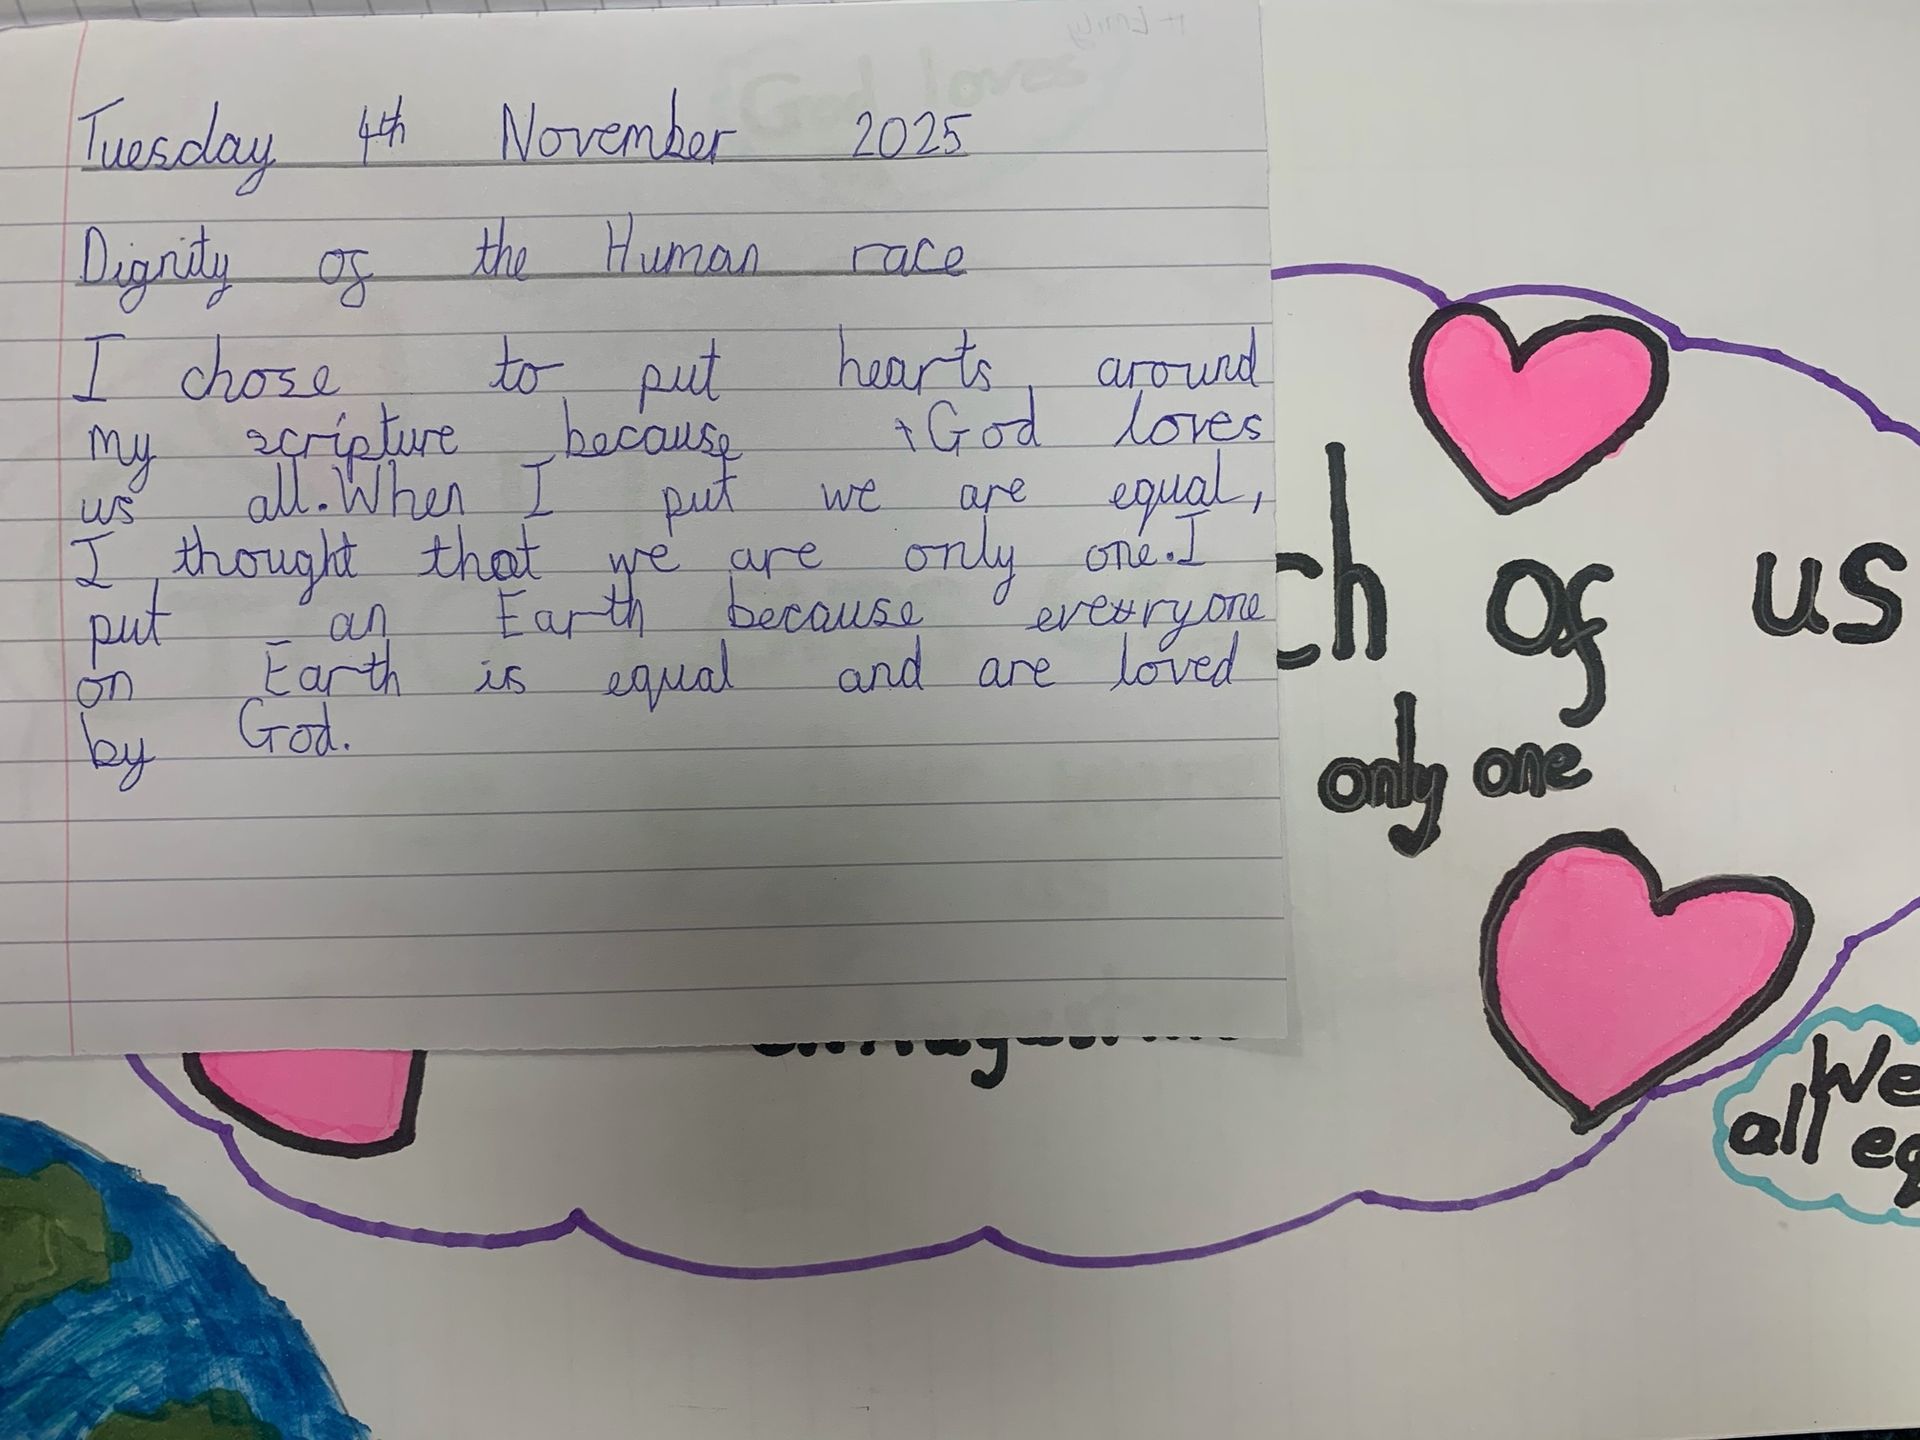 Tuesday 4th November 2025
Dignity of the Human race
I chose to put hearts around
my scripture because God loves
us all. When I put we are equal,
I thought that we are only one. I
put an Earth because everyone
on Earth is equal and are loved
by God.
ch of us
only one
We
all eq